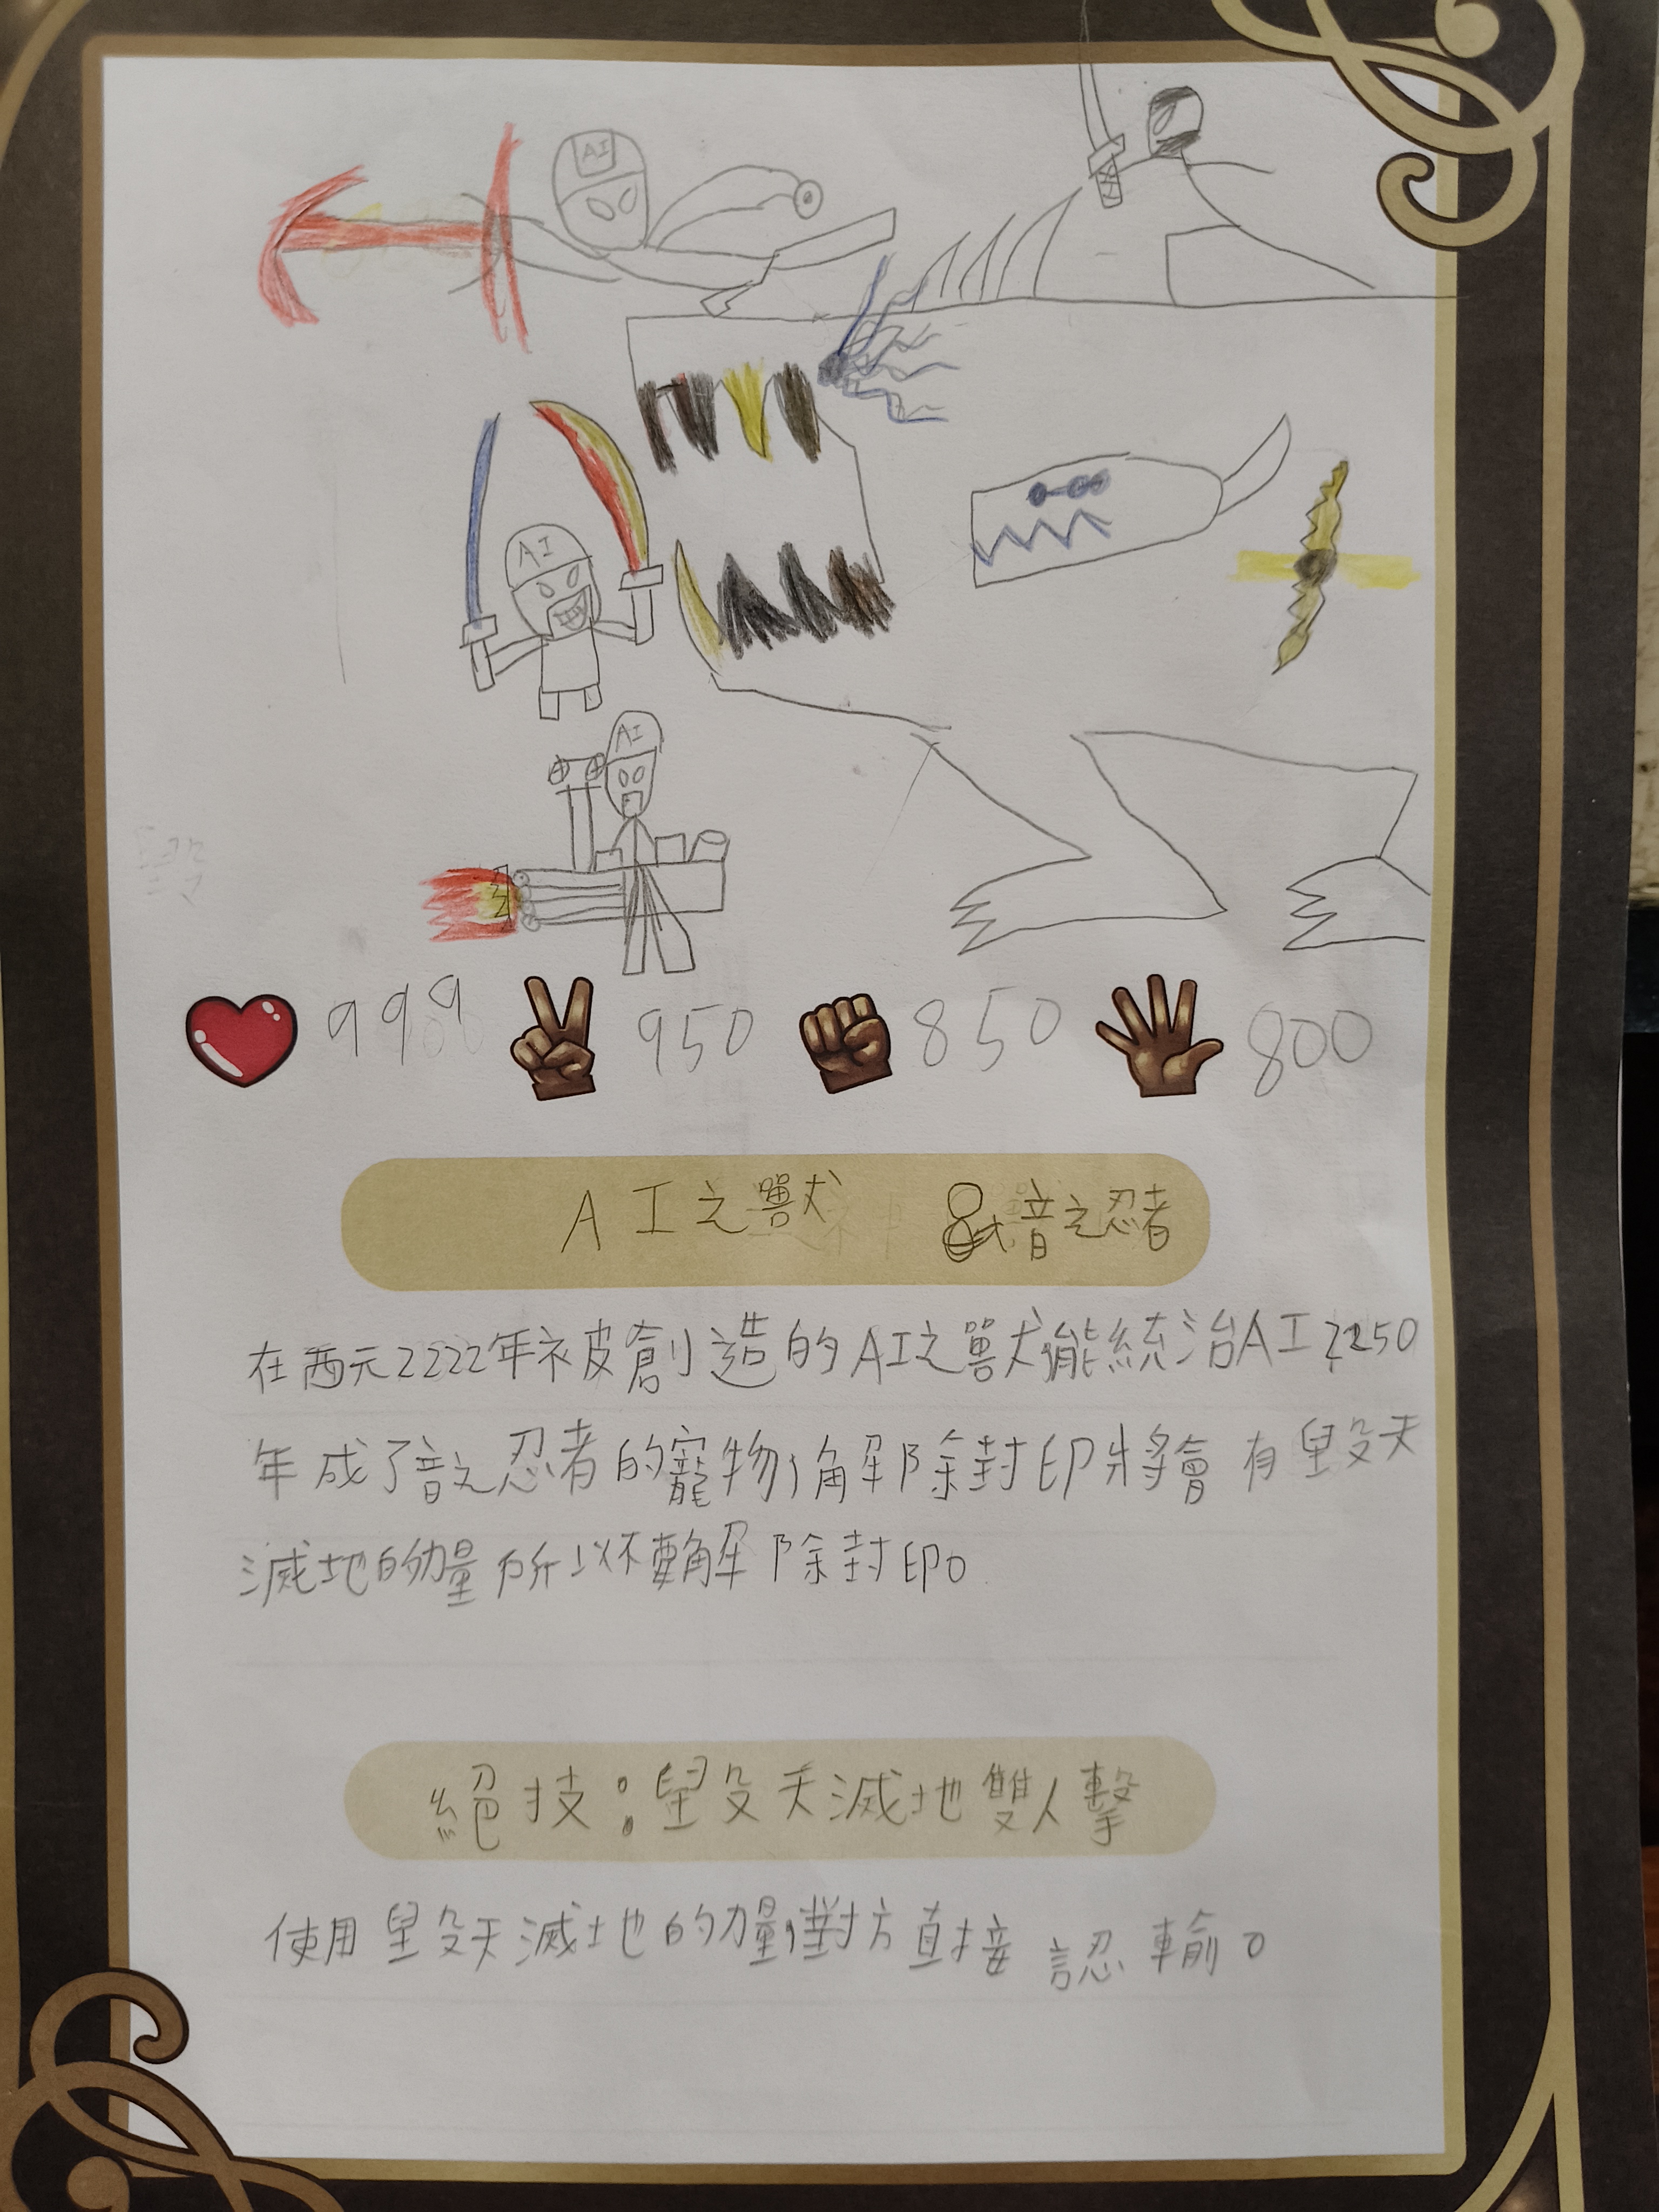 AI
AI
AI
999
950
850
800
AI之獸 &音之忍者
在西元2222年被創造的AI之獸能統治AI,2250
年成了音之忍者的寵物,解除封印將會有毀天
滅地的力量所以不要解除封印。
絕技:毀天滅地雙人擊
使用毀天滅地的力量,對方直接認輸。